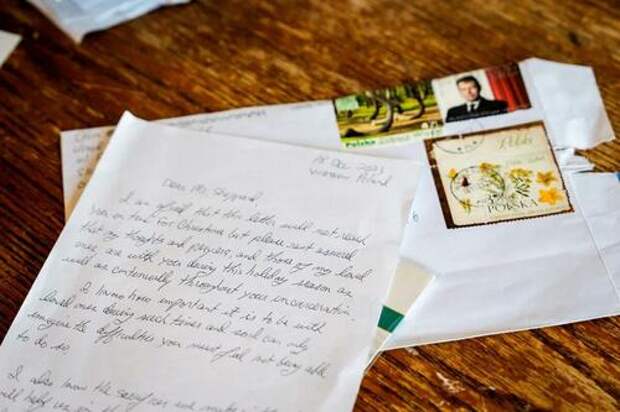 Dec 2023
Warsaw, Poland
Dear Mr. Sheppard,
I am afraid that this letter will not reach
you on time for Christmas but please rest assured
that my thoughts and prayers, and those of my loved
ones are with you during this holiday season as
well as continually throughout your incarceration.
I know how important it is to be with
loved ones during such times and can only
imagine the difficulties you must feel not being able
to do so.
I also know the
will help
Polska
Polska
POLSKA